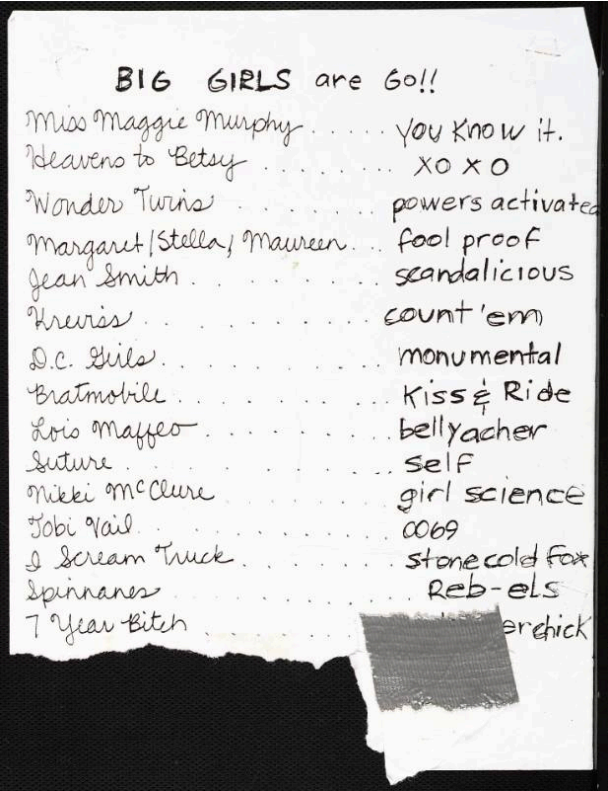 BIG GIRLS are Go!!
Miss Maggie Murphy . . . . . . You Know it.
Heavens to Betsy . . . . . . . . XOXO
Wonder Twins . . . . . . . . powers activated
Margaret/Stella/Maureen . . . fool proof
Jean Smith . . . . . . . . scandalicious
Kreviss . . . . . . . . . count 'em
D.C. Girls . . . . . . . . monumental
Bratmobile . . . . . . . . Kiss & Ride
Lois Maffeo . . . . . . . . bellyacher
Suture . . . . . . . . . self
Nikki McClure . . . . . . . girl science
Tobi Vail . . . . . . . . 0069
I Scream Truck . . . . . . . stone cold fox
Spinnanes . . . . . . . . Reb-els
7 Year Bitch . . . . . . . . erchick